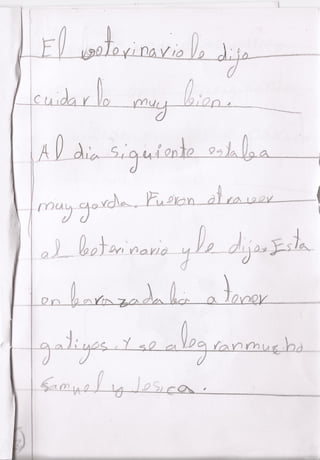 El veterinario le dijo
cuidarlo muy bien.
Al dia siguiente estaba
muy gorda. Fueron otra ver
al beterinario y le dijo. Esta
en barazada ba a tener
gatiyos. Y se alegran mucho
Samuel y Jesica.